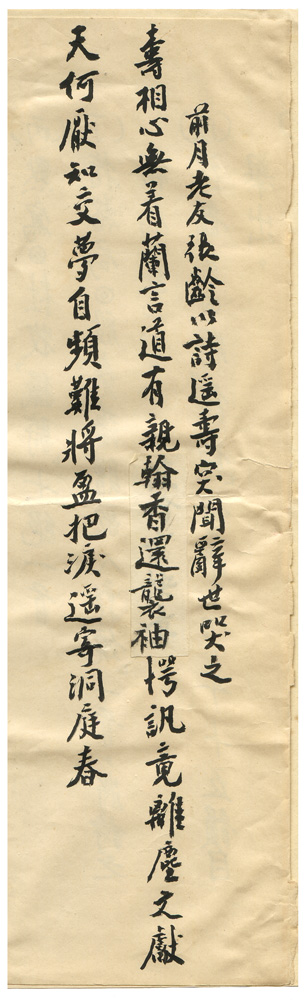 前月老友張齡以詩遥壽突聞辭世哭之
壽相心無着蘭言道有親翰香還襲袖愕訊竟離塵文獻
天何厭知交夢自頻難將盈把淚遥寄洞庭春